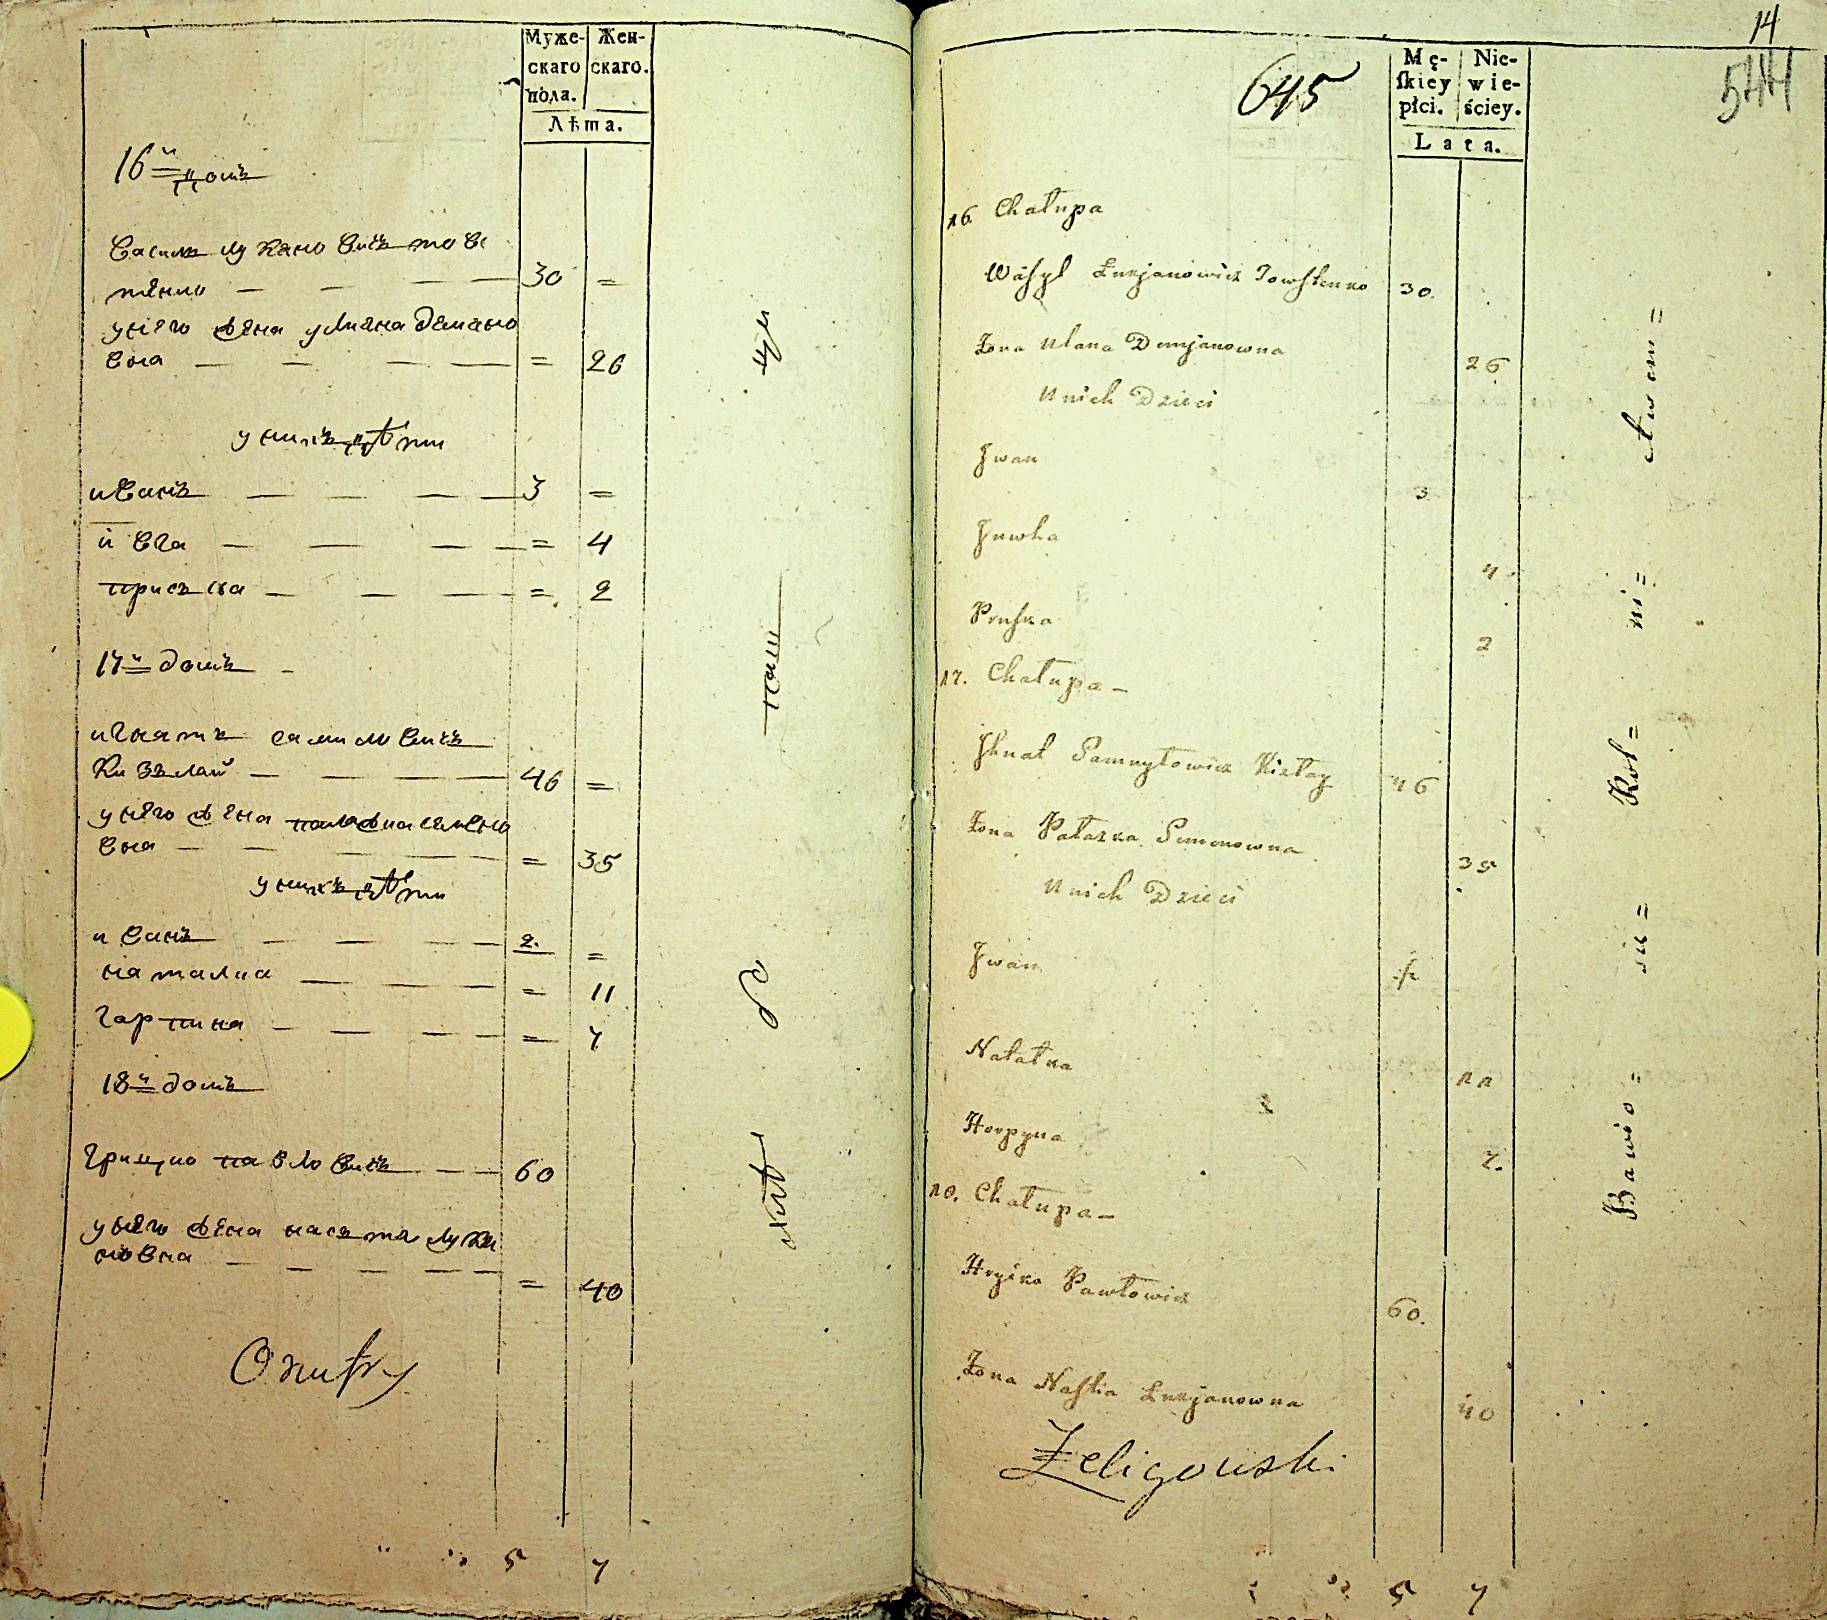 Муже-
скаго
пола.
Жен-
скаго.
Лѣта.
16й домъ
Василь Лукяновичъ Товс
тенко — — — 30 =
у него жена Уляна Демяно
вна — — — — = 26
у нихъ дѣти
иванъ — — — — 3 =
ивга — — — — = 4
приська — — — = 2
17й домъ —
игнатъ самиловичъ
Кизълай — — — — 46 =
у него жена палажка семено
вна — — — — = 35
у нихъ дѣти
иванъ — — — — 2. =
наталка — — — — = 11
гарпина — — — — = 7
18й домъ
грицко павловичъ — — 60
у него жена настя Луки
новна — — — — = 40
Onufry
5 7
жите
паш
14
544
645
Mę-
ſkiey
płci.
Nie-
wie-
ściey.
Lata.
16 Chałupa
Waſyl Łukjanowicz Towſtenko 30.
Żona Ulana Demjanowna 26
U nich Dzieci
Jwan 3
Juwha 4
Pruſka 2
17. Chałupa —
Jhnat Samuyłowicz Kizłay 46
Żona Pałazka Semenowna 35
U nich Dzieci
Jwan
Natałka 11
Horpyna 7.
18. Chałupa —
Hryćko Pawłowicz 60.
Żona Naſtia Łukjanowna 40
Żeligowski
5 7
Bawio =
się =
Rol =
ni =
ctwem =